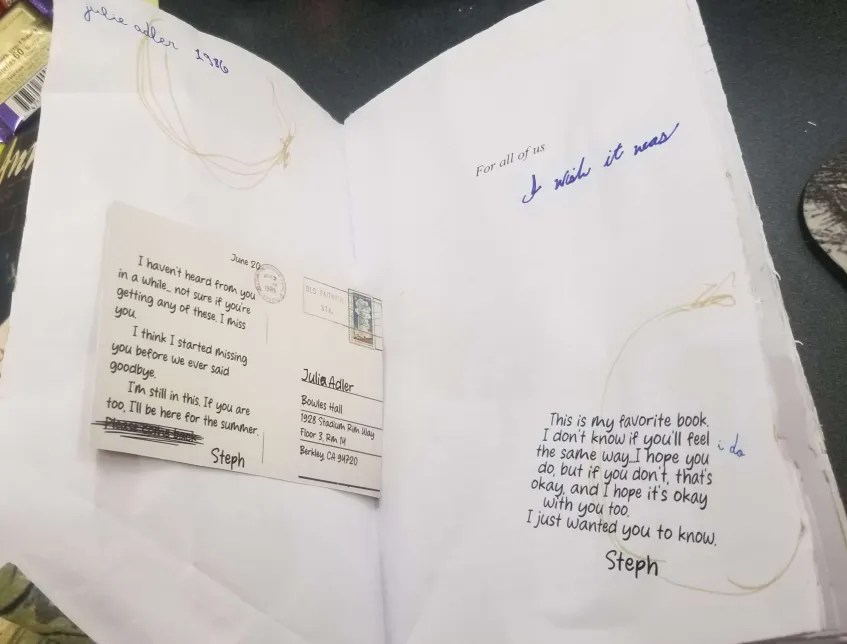 julie adler 1986
June 20
I haven't heard from you
in a while... not sure if you're
getting any of these. I miss
you.
I think I started missing
you before we ever said
goodbye.
I'm still in this. If you are
too, I'll be here for the summer.
Steph
Julia Adler
Bowles Hall
1928 Stadium Rim Way
Floor 3, Rm 14
Berkley, CA 94720
For all of us
I wish it was
This is my favorite book.
I don't know if you'll feel
the same way...I hope you
i do
do, but if you don't, that's
okay, and I hope it's okay
with you too.
I just wanted you to know.
Steph